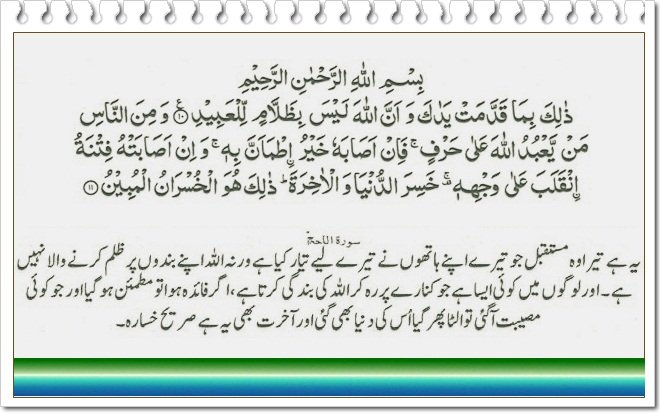 بِسْمِ اللهِ الرَّحْمٰنِ الرَّحِيْمِ
ذٰلِكَ بِمَا قَدَّمَتْ يَدٰكَ وَ اَنَّ اللهَ لَيْسَ بِظَلَّامٍ لِّلْعَبِيْدِ ۧ۝۱۰ وَ مِنَ النَّاسِ
مَنْ يَّعْبُدُ اللهَ عَلٰى حَرْفٍ ۚ فَاِنْ اَصَابَهٗ خَيْرُ ۨاطْمَاَنَّ بِهٖ ۚ وَ اِنْ اَصَابَتْهُ فِتْنَةُ
ۨانْقَلَبَ عَلٰى وَجْهِهٖ ۫ۚ خَسِرَ الدُّنْيَا وَ الْاٰخِرَةَ ؕ ذٰلِكَ هُوَ الْخُسْرَانُ الْمُبِيْنُ ۝۱۱
سورۃ الحج
یہ ہے تیرا وہ مستقبل جو تیرے اپنے ہاتھوں نے تیرے لیے تیار کیا ہے ورنہ اللہ اپنے بندوں پر ظلم کرنے والا نہیں
ہے۔ اور لوگوں میں کوئی ایسا ہے جو کنارے پر رہ کر اللہ کی بندگی کرتا ہے، اگر فائدہ ہوا تو مطمئن ہو گیا اور جو کوئی
مصیبت آگئی تو الٹا پھر گیا اُس کی دنیا بھی گئی اور آخرت بھی یہ ہے صریح خسارہ۔